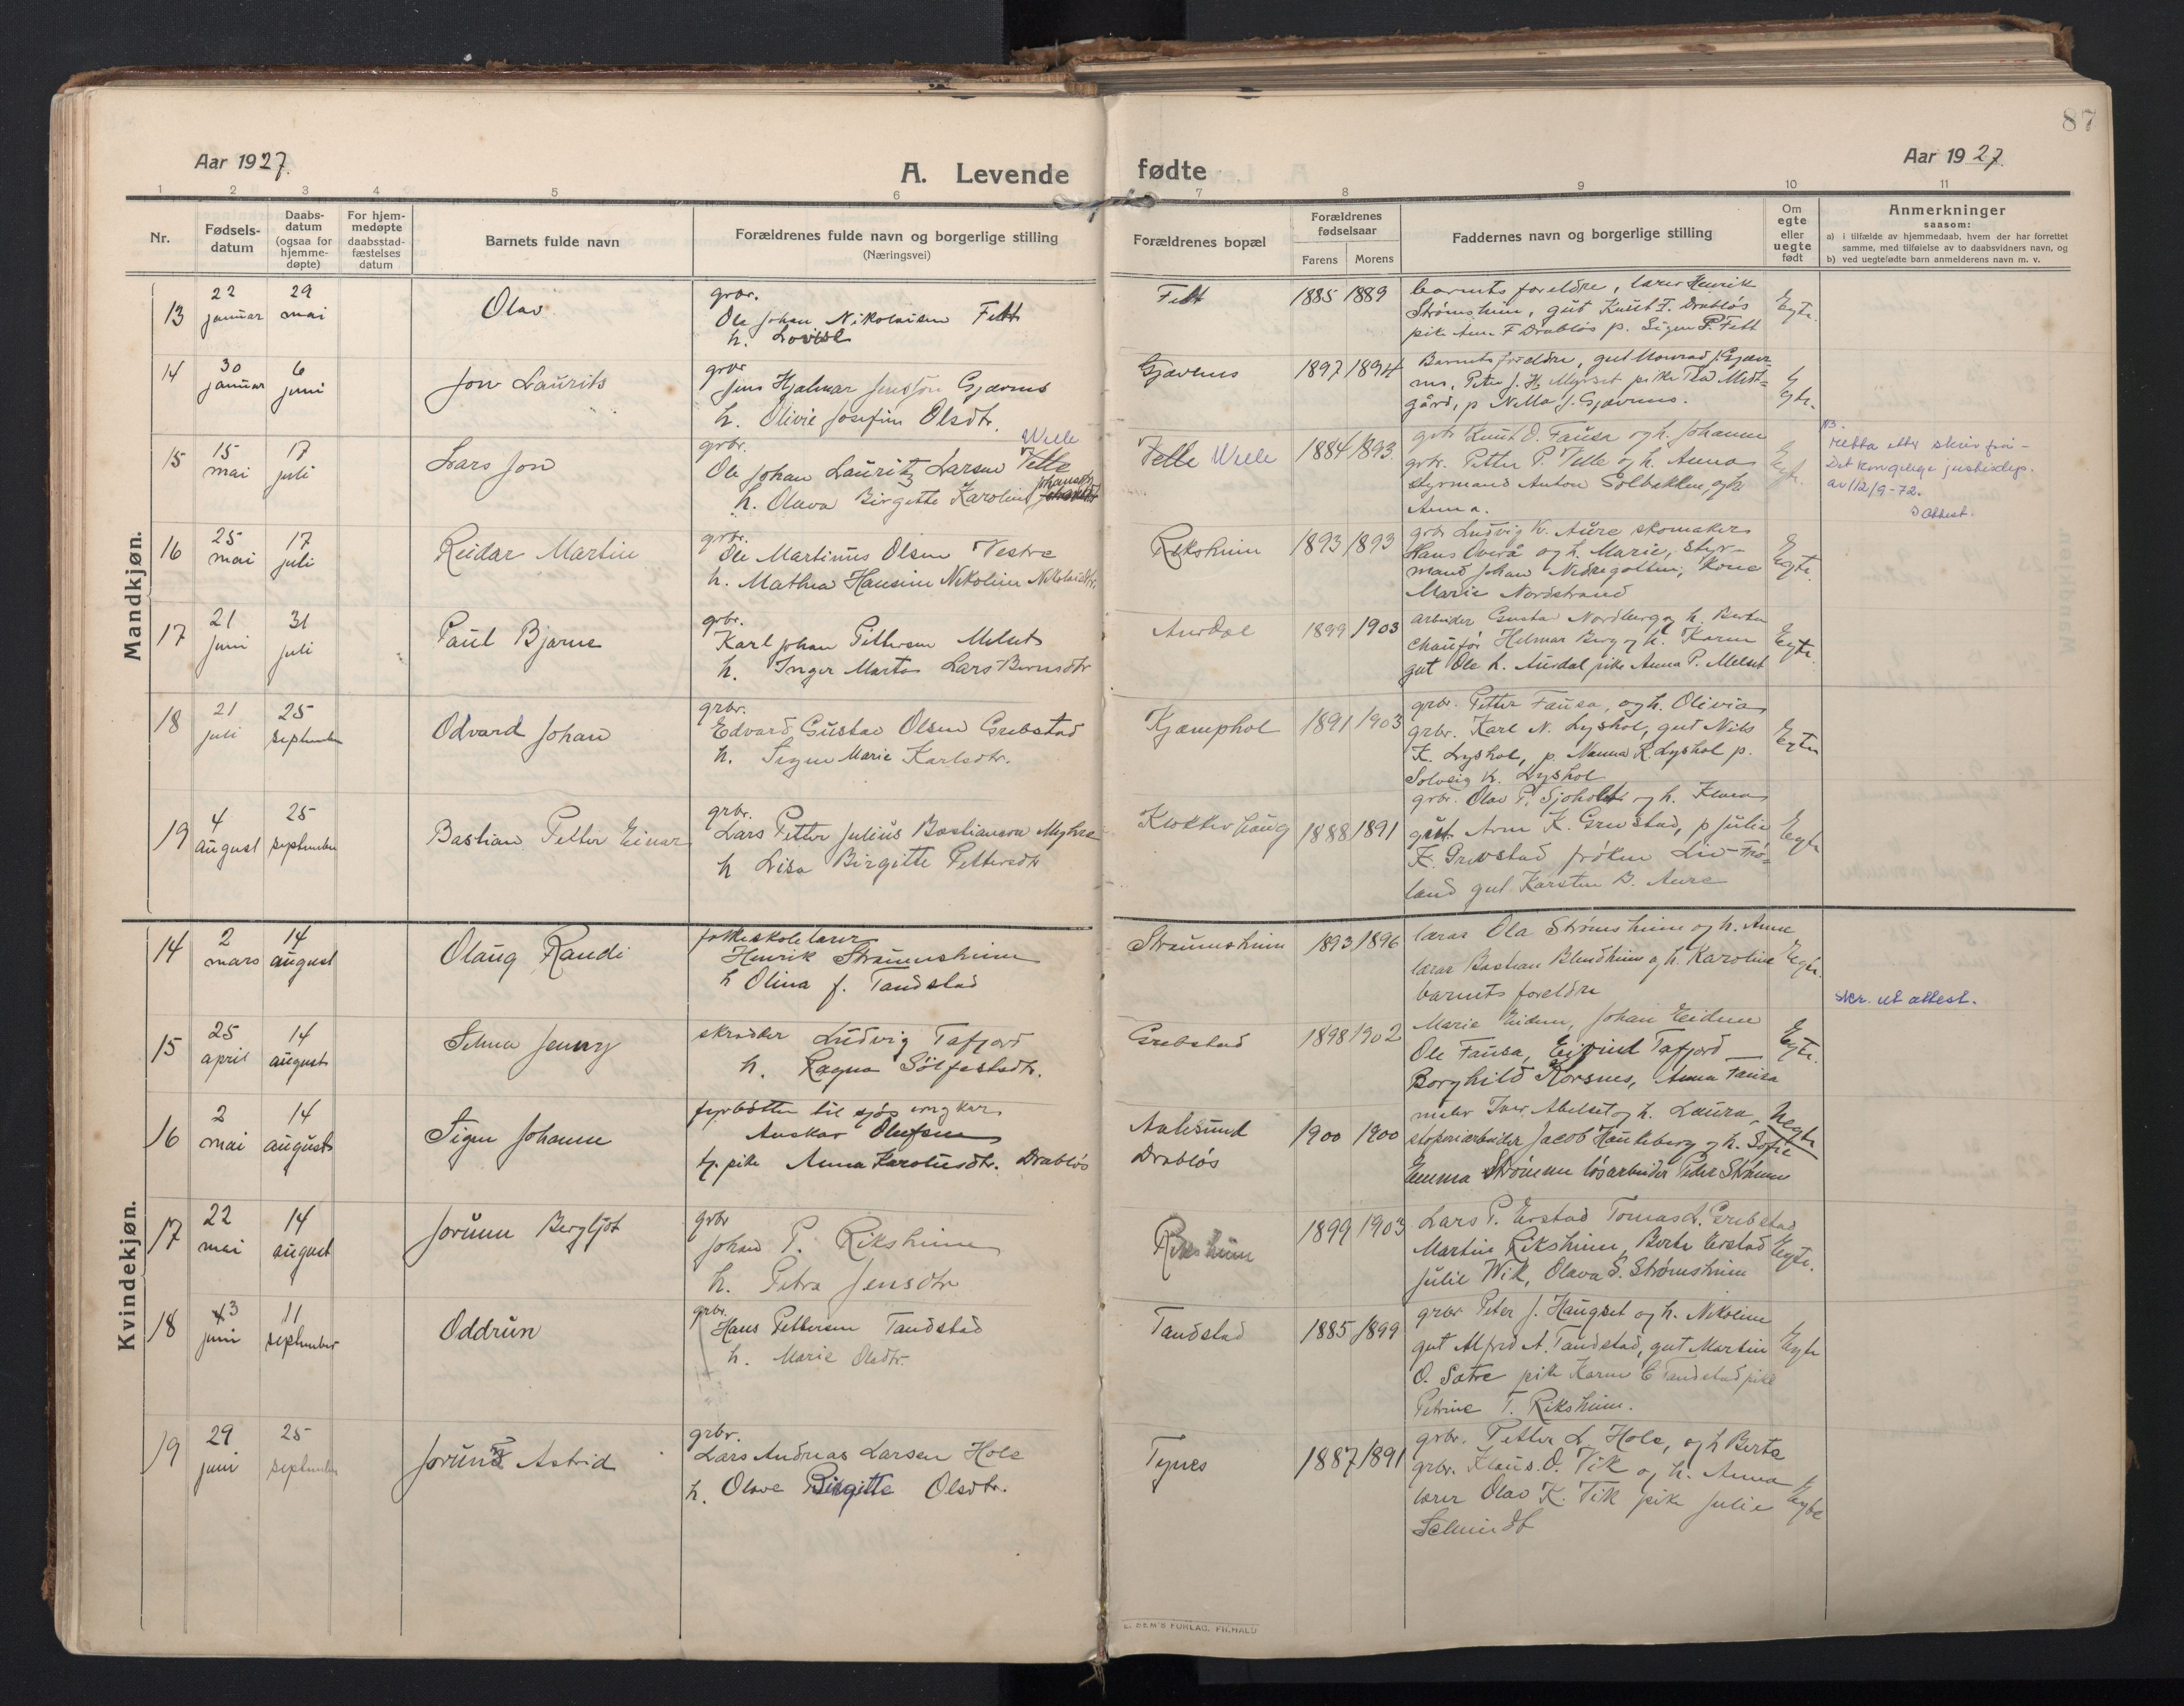 87
Aar 1927.
A. Levende
fødte
Aar 1927.
1 2 3 4 5 6 7 8 9 10 11
Nr.
Fødsels-
datum
Daabs-
datum
(ogsaa for
hjemme-
døpte)
For hjem-
medøpte
daabsstad-
fæstelses
datum
Barnets fulde navn
Forældrenes fulde navn og borgerlige stilling
(Næringsvei)
Forældrenes bopæl
Forældrenes
fødselsaar
Farens Morens
Faddernes navn og borgerlige stilling
Om
egte
eller
uegte
født
Anmerkninger
saasom:
a) i tilfælde av hjemmedaab, hvem der har forrettet
samme, med tilføielse av to daabsvidners navn, og
b) ved uegtefødte barn anmelderens navn m. v.
Mandkjøn.
13 22 januar 29 mai Olav
grbr.
Ole Johan Nikolaisen Fett
h. Lovise
Fett 1885 1889
barnets foreldre, lærer Henrik
Strømsheim, gut Knut F. Drabløs
pike Anna F Drabløs p. Signe P. Fett
Egte.
14 30 januar 6 juni Jon Laurits
grbr
Jens Hjalmar Jensson Gjævenes
h. Olivie Josefine Olsdtr.
Gjævenes 1897 1894
Barnets foreldre, gut Monrad J. Gjæv-
nes, Peter J. H. Myrset pike Thea Midt-
gård, p Nella J. Gjævenes.
Egte.
15 15 mai 17 juli Lars Jon
grbr. Welle
Ole Johan Lauritz Larsen Velle
h. Olava Birgitte Karoline Johansdtr
Velle Welle 1884 1893.
grbr Knut O. Fausa og h. Johanne
grbr. Petter P. Velle og h. Anna
styrmand Anton Solbakken, og h
Anna.
Egte.
NB.
retta etter skriv frå -
Det kongelege justisdep.
av 12/9-72.
S attest.
16 25 mai 17 juli Reidar Martin
grbr.
Ole Martinus Olsen Vestre
h. Mathea Hansine Nikoline Nikolaidtr.
Riksheim 1893 1893
grbr Ludvig K. Aure skomaker
Hans Overå og h. Marie, styr-
mand Johan Nedregotten, Kone
Marie Nordstrand
Egte.
17 21 juni 31 juli Paul Bjarne
grbr.
Karl Johan Pettersen Melset
h. Inger Marta Lars Berntsdtr
Aurdal 1899 1903
arbeider Gustav Nordberg og h. Berta
Chaufør Helmar Berg og h. Karen
gut Ole L. Aurdal pike Anna P. Melset
Egte.
18 21 juli 25 september Odvard Johan
grbr.
Edvard Gustav Olsen Grebstad
h. Signe Marie Karlsdtr.
Kjæmphol 1891 1903
grbr. Petter Fausa, og h. Olivia
grbr. Karl N. Lyshol, gut Nils
K. Lyshol, p. Nanna K. Lyshol p.
Solveig K. Lyshol
Egte
19 4 august 25 september Bastian Petter Einar
grbr.
Lars Petter Julius Bastiansen Myhre
h Lisa Birgitte Pettersdtr
Klokkerhaug 1888 1891
grbr. Olav P. Sjøholt og h. Klara
gut Arne K. Grevstad, p Julie
K. Grevstad frøken Liv Frø-
land gut Karsten B. Aure
Egte
Kvindekjøn.
14 2 mars 14 august Olaug Randi
folkeskolelærer
Henrik Straumsheim
h Olina f. Tandstad
Straumsheim 1893 1896
lærar Ola Strømsheim og h. Anne
lærar Bastian Blindheim og h. Karoline
barnets foreldre
Egte.
skr. ut attest.
15 25 april 14 august Selma Jenny
skrædder Ludvig Tafjord
h. Ragna Sølfestsdtr.
Grebstad 1898 1902
Marie Eidem, Johan Eidem
Ole Fausa, Eivind Tafjord
Borghild Korsnes, Anna Fausa
Egte.
16 2 mai 14 august Signe Johanne
fyrbøtter til sjøs ungkar
Anskar Olufsen
tj. pike Anna Karolusdtr. Drabløs
Aalesund
Drabløs
1900 1900
maler Iver Abelset og h. Laura,
støperiarbeider Jacob Haukeberg og h. Sofie
Emma Strømme løsarbeider Peder Strømme
Uegte
17 22 mai 14 august Jorunn Bergljot
grbr
Johan P. Riksheim
h. Petra Jensdtr
Riksheim 1899 1903
Lars P. Erstad Tomas L. Grebstad
Martin Riksheim, Berte Erstad
Julie Wik, Olava S. Strømsheim
Egte.
18 3 juni 11 september Oddrun
grbr.
Hans Pettersen Tandstad
h. Marie Olsdtr.
Tandstad 1885 1899
grbr Peter J. Haugset og h. Nikoline
gut Alfred A. Tandstad, gut Martin
O. Sætre pike Karen E Tandstad pike
Petrine T. Riksheim.
Egte
19 29 juni 25 september Jorunn Astrid
grbr.
Lars Andreas Larsen Hole
h. Olave Birgitte Olsdtr.
Tynes 1887 1891
grbr. Petter L. Hole, og h Berte
grbr. Klaus O. Vik og h. Anna
lærer Olav K. Vik pike Julie
Schmidt
Egte